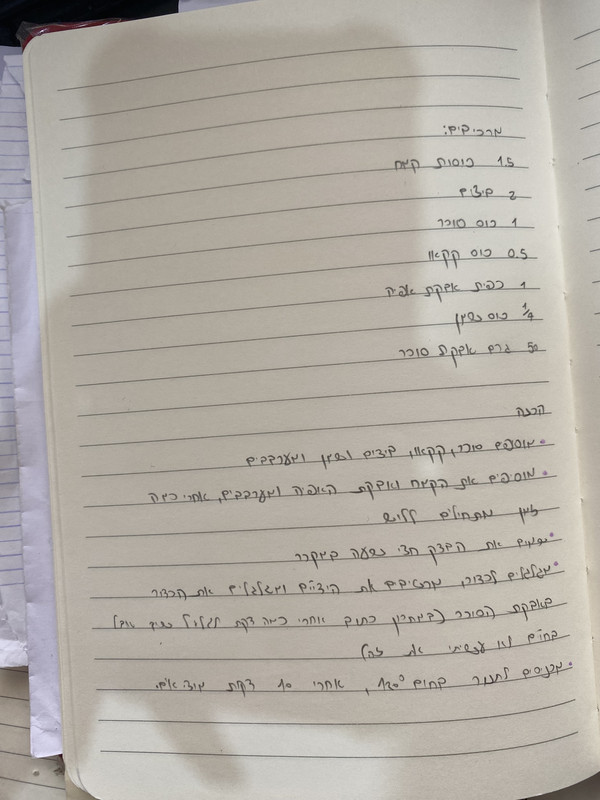 מרכיבים:
1.5 כוסות קמח
2 ביצים
1 כוס סוכר
0.5 כוס קקאו
1 כפית אבקת אפיה
1/4 כוס שמן
50 גרם אבקת סוכר
הכנה
• מוספים סוכר, קקאו, ביצים ושמן ומערבבים
• מוסיפים את הקמח ואבקת האפיה ומערבבים, אחרי כמה
זמן מתחילים ללוש
• שמים את הבצק חצי שעה במקרר
• מגלגלים לכדור, מרטיבים את הידיים ומגלגלים את הכדור
באבקת הסוכר (במתכון כתוב אחרי כמה דקות לגלגל שוב אבל
בחיים לא עשיתי את זה)
• מכניסים לתנור בחום 170°, אחרי 10 דקות מוציאים.